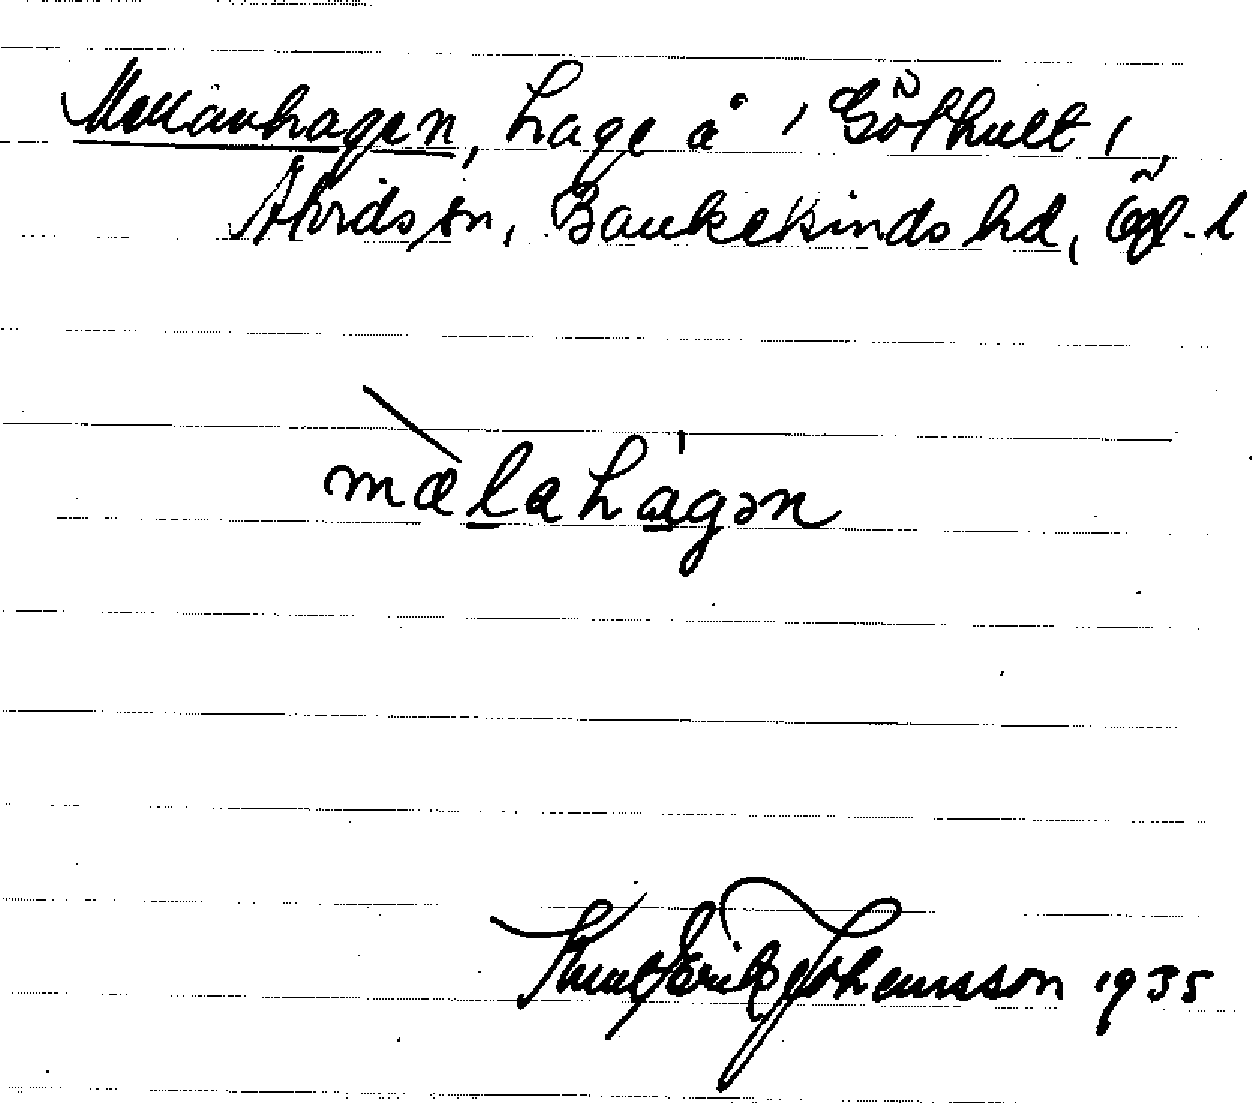 Mellanhagen, hage å 'Göthult',
Atvids sn, Bankekinds hd, Ögl. l
mælahagən
Knut Erik Johansson 1935